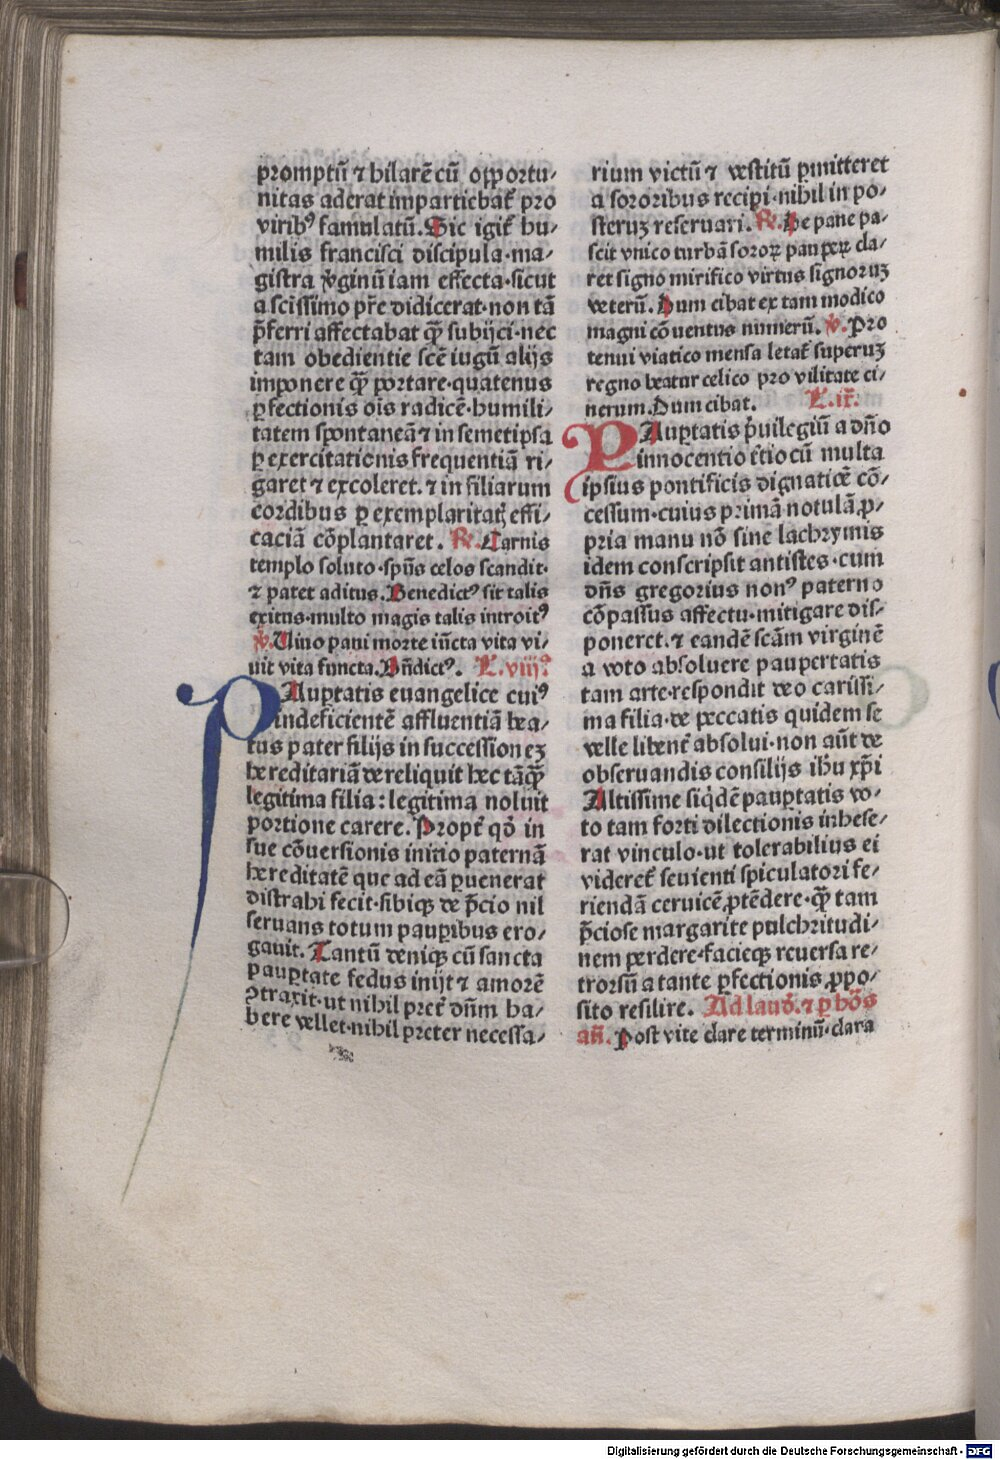 promptū ⁊ hilarē cū opportu⸗
nitas aderat impartiebat᷑ pro
virib⁹ famulatū. Sic igit᷑ hu⸗
milis francisci discipula·ma⸗
gistra v̾ginū iam effecta·sicut
a scīssimo pr̄e didicerat·non tā
p̄ferri affectabat q̄ȝ subijci·nec
tam obedientie scē iugū alijs
imponere q̄ȝ portare·quatenus
ꝑfectionis oīs radicē·humili⸗
tatem spontaneā ⁊ in semetipsa
ꝑ exercitationis frequentiā ri⸗
garet ⁊ excoleret. ⁊ in filiarum
cordibus ꝑ exemplaritatȩ effi⸗
caciā cōplantaret. ℟. Carnis
templo soluto·spūs celos scandit·
⁊ patet aditus. Benedict⁹ sit talis
exitus·multo magis talis introit⁹
℣. Uino pani morte iūcta vita vi⸗
uit vita functa. Bn̄dict⁹. L. viij.ª
PAuꝑtatis euangelice cui⁹
indeficientē affluentiā bea⸗
tus pater filijs in successionez
hereditariā dereliquit hec tāq̄ȝ
legitima filia: legitima noluit
portione carere. Propt᷑ qō in
sue cōuersionis initio paternā
hereditatē que ad eā ꝑuenerat
distrahi fecit·sibiqꝫ de p̄cio nil
seruans totum pauꝑibus ero⸗
gauit. Tantū deniqꝫ cū sancta
pauꝑtate fedus inijt ⁊ amorē
ꝯtraxit·ut nihil pret᷑ dūm ha⸗
bere vellet·nihil preter necessa⸗
rium victū ⁊ vestitū ꝑmitteret
a sororibus recipi·nihil in po⸗
sterūꝫ reseruari. ℟. De pane pa⸗
scit vnico turbā soroꝝ pauperꝝ cla⸗
ret signo mirifico virtus signorūꝫ
veterū. Dum cibat ex tam modico
magni cōuentus numerū. ℣. Pro
tenui viatico mensa letat᷑ superūꝫ
regno beatur celico pro vilitate ci⸗
nerum. Dum cibat. L. ix.
PAuꝑtatis p̓uilegiū a dn̄o
innocentio t̓tio cū multa
ipsius pontificis dignatiōe cō⸗
cessum·cuius primā notulā ꝓ⸗
pria manu nō sine lachrymis
idem conscripsit antistes·cum
dn̄s gregorius non⁹ paterno
cōpassus affectu·mitigare dis⸗
poneret. ⁊ eandē scām virginē
a voto absoluere paupertatis
tam arte·respondit deo carissi⸗
ma filia·de peccatis quidem se
velle libent᷑ absolui·non aūt de
obseruandis consilijs ihū xp̄i
Altissime siq̓dē pauꝑtatis vo⸗
to tam forti dilectionis inhese⸗
rat vinculo·ut tolerabilius ei
videret᷑ seuienti spiculatori fe⸗
riendā ceruicē ꝓtēdere·q̄ȝ tam
p̄ciose margarite pulchritudi⸗
nem perdere·facieqꝫ reuersa re⸗
trorsū a tante ꝑfectionis ꝓpo⸗
sito resilire. Ad laud̄. ⁊ ꝑ hōs
an̄. Post vite clare terminū·clara
Digitalisierung gefördert durch die Deutsche Forschungsgemeinschaft - DFG